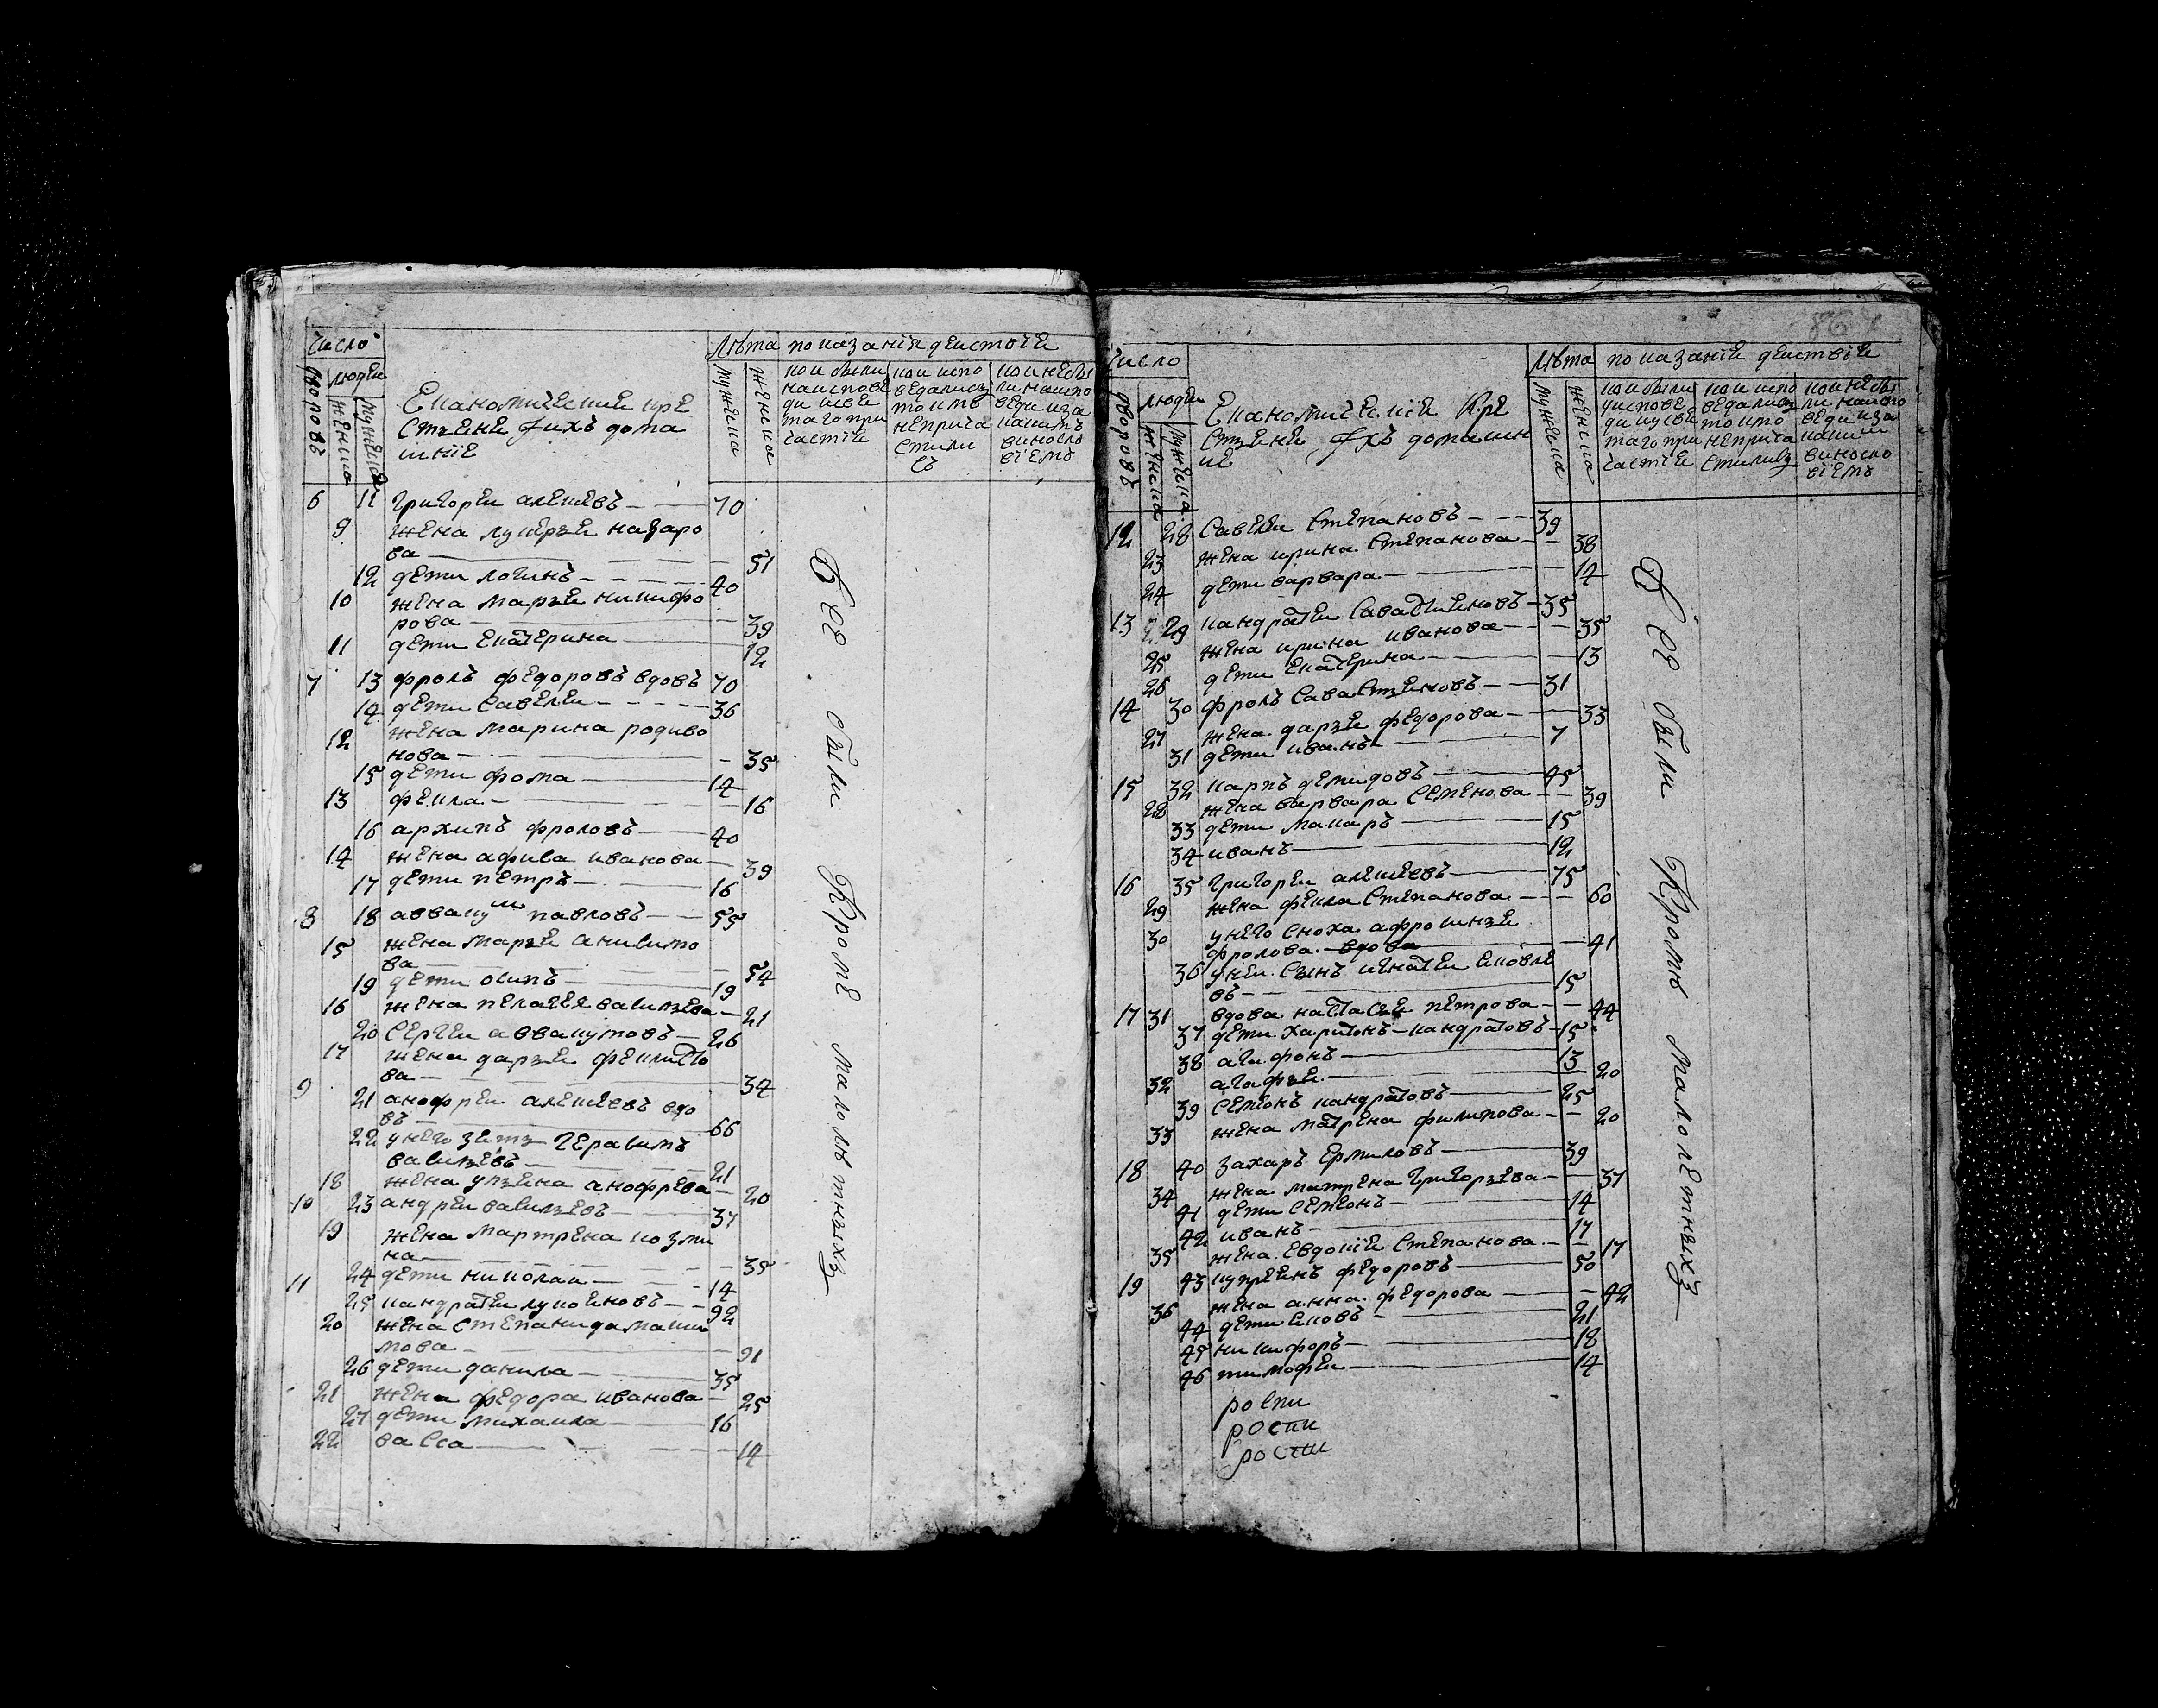 число
дворовъ
людеи
женска
мужеска
Економические кре
стъяне ѵихъ дома
шние
лѣта показание деиствие
мужеска
женска
кои были
наиспове
ди исвя
таго при
частие
кои испо
ведались
токмо
неприча
стили
съ
кои небы
ли наиспо
веди иза
какимъ
виносло
виемъ
6 11 григореи алексеевъ 70
9 жена лукеръя назаро
ва 51
12 дети логинъ 40
10 жена маръя никифо
рова 39
11 дети екатерина 12
7 13 фролъ федоровъ вдовъ 70
14 дети савелеи 36
12 жена марина родиво
нова 35
15 дети фома 14
13 фекла 16
16 архипъ фроловъ 40
14 жена афи иванова 39
17 дети петръ 16
8 18 аввакумъ павловъ 55
15 жена маръя анисимо
ва 54
19 дети осипъ 19
16 жена пелагея василъева 21
20 сергеи аввакумовъ 26
17 жена даръя феклисто
ва 34
9 21 анофреи алексеевъ вдо
въ 66
22 унего зять герасимъ
василъевъ 21
18 жена улъяна анофрева 20
10 23 андреи василъевъ 37
19 жена мартрена козми
на 35
24 дети николаи 14
11 25 кандратеи лукояновъ 92
20 жена степанида макси
мова 91
26 дети данила 35
21 жена федора иванова 25
27 дети михаила 16
22 васса 14
Все были Кроме малолѣтныхъ
число
дворовъ
людеи
женска
мужеска
Економические Кре
стъяне ѵхъ домашн
ие
лѣта показание деиствие
мужеска
женска
кои были
уиспове
ди исвя
таго при
частие
кои испо
ведались
токмо
неприча
стились
кои небы
ли наиспо
веди иза
каким
виносло
виемъ
12 28 Савелеи степановъ 39
23 жена ирина степанова 38
24 дети варвара 14
13 29 кандратеи Савастияновъ 35
25 жена ирина иванова 35
26 дети екатерина 13
14 30 фролъ Савастъяновъ 31
27 жена даръя федорова 33
31 дети иванъ 7
15 32 карпъ демидовъ 45
28 жена варвара семенова 39
33 дети макаръ 15
34 иванъ 12
16 35 григореи алексеевъ 75
29 жена фекла степанова 60
30 унего сноха афросинъя
фролова вдова 41
36 унеи сынъ игнатеи яковле
въ 15
17 31 вдова настасъя петрова 44
37 дети харитонъ кандратовъ 15
38 агафонъ 13
32 агафъя 20
39 семенъ кандратовъ 25
33 жена матрена филипова 20
18 40 захаръ ермиловъ 39
34 жена матрена григоръева 37
41 дети семенъ 14
42 иванъ 17
35 жена евдокия степанова 17
19 43 купреянъ федоровъ 50
36 жена анна федорова 42
44 дети яковъ 21
45 никифоръ 18
46 тимофеи 14
роспи
роспи
роспи
Все были Кромѣ малолетныхъ